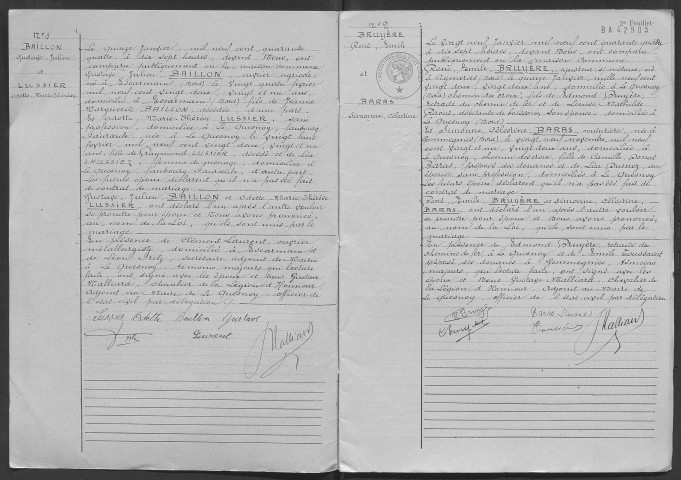 N° 1
BAILLON
Gustave, Julien
et
LUSSIER
Odette, Marie Thérèse
Le quinze Janvier, mil neuf cent quarante
quatre, à dix sept heures, devant Nous, ont
comparu publiquement en la maison commune
Gustave, Julien BAILLON, ouvrier agricole
né à Escarmain (Nord) le vingt quatre
mil neuf cent vingt deux, vingt et un ans
domicilié à Escarmain (Nord) fils de Jeanne
Marguerite BAILLON, d'une part.
Et Odette, Marie-Thérèse LUSSIER, sans
profession, domiciliée à Le Quesnoy, faubourg
née à Le Quesnoy le vingt huit
mil neuf cent vingt deux, vingt et un
ans, fille de LUSSIER, décédé et de
femme de ménage, domiciliée à
Le Quesnoy, faubourg d'autre part.
Les futurs époux déclarent qu'il n'a pas été fait
de contrat de mariage.
Gustave, Julien BAILLON et Odette Marie-Thérèse
LUSSIER ont déclaré l'un après l'autre vouloir
se prendre pour époux et Nous avons prononcé,
au nom de la Loi, qu'ils sont unis par le
mariage.
En présence de Clément Laurent, ouvrier
métallurgiste, domicilié à Escarmain et
de Léon secrétaire adjoint de Mairie
à Le Quesnoy, témoins majeurs qui lecture
faite, ont signé avec les époux et Nous Gustave
Malliard, chevalier de la Légion d'Honneur
adjoint au Maire de Le Quesnoy, officier de
l'état civil par délégation.
Lussier Odette Baillon Gustave
Laurent Malliard
2e Feuillet
BA 42905
N° 2
BRUYÈRE
René, Emile
et
BARAS
Simonne, Célestine
Le vingt neuf Janvier mil neuf cent quarante quatre
à dix sept heures, devant Nous, ont comparu
publiquement en la maison commune
René, Emile, BRUYÈRE, né
à le quinze Janvier, mille neuf cent
vingt deux, vingt deux ans, domicilié à Le Quesnoy
(Nord) chemin des croix, fils de Edmond Bruyère,
retraité du chemin de fer et de Louise Mathilde
débitante de boissons, son épouse, domiciliés à
Le Quesnoy (Nord).
Et Simonne, Célestine, BARAS, couturière, née à
(Nord) le vingt neuf novembre mil neuf
cent vingt et un, vingt deux ans, domiciliée à
Le Quesnoy, chemin des croix, fille de Camille
Baras, préposé des douanes et de Léa son
épouse sans profession, domiciliés à Le Quesnoy.
Les futurs époux déclarent qu'il n'a pas été fait de
contrat de mariage.
René, Emile, BRUYÈRE et Simonne, Célestine,
BARAS, ont déclaré l'un après l'autre vouloir
se prendre pour époux et Nous avons prononcé,
au nom de la Loi, qu'ils sont unis par le
mariage.
En présence de Edmond Bruyère, retraité du
chemin de fer à Le Quesnoy et de Emile Toussaint
préposé des douanes à Gommegnies, témoins
majeurs qui lecture faite, ont signé avec les
époux et Nous Gustave Malliard, chevalier de
la Légion d'Honneur, adjoint au Maire de
Le Quesnoy, officier de l'état civil par délégation
Bruyère Baras Simonne
Malliard